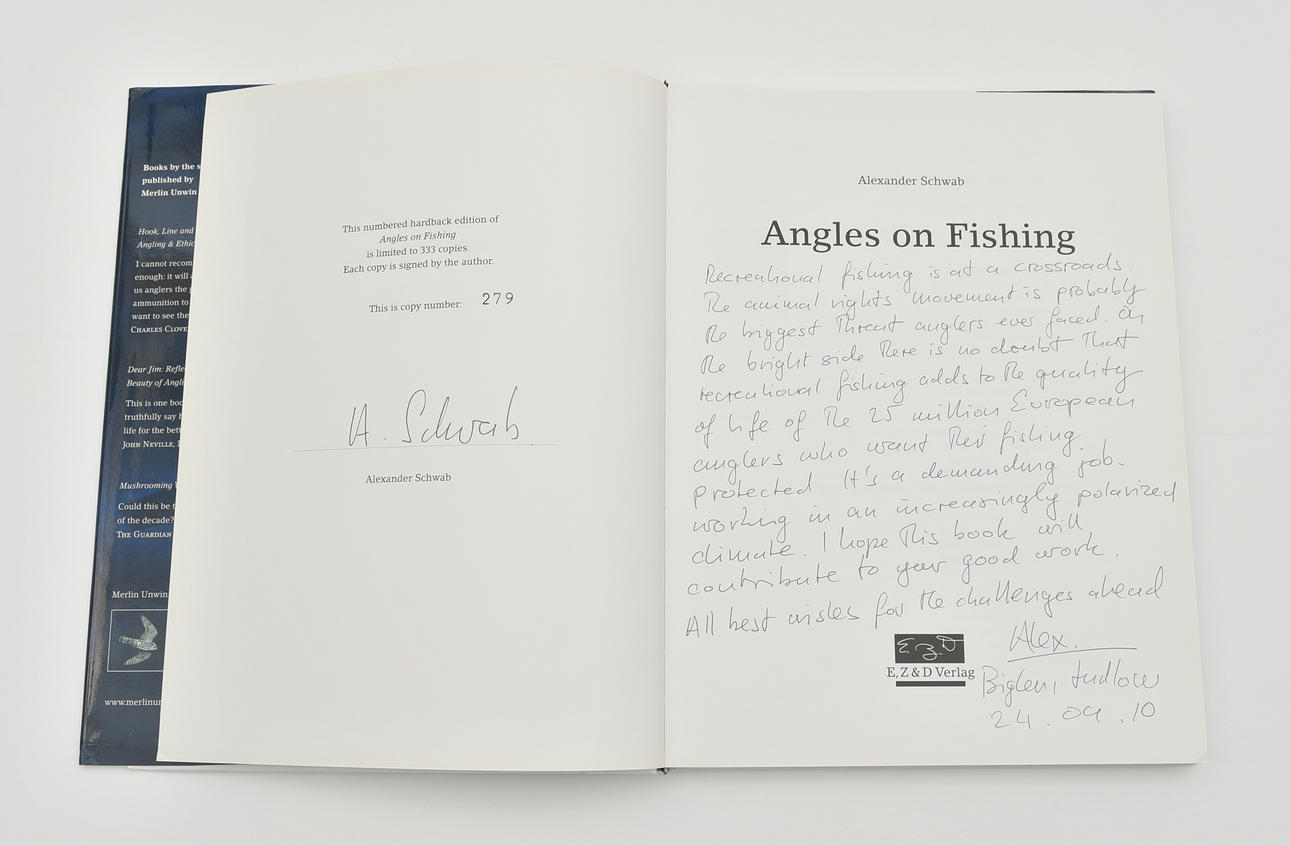 Books by the s
published by
Merlin Unwin
Hook, Line and
Angling & Ethic
I cannot recom
enough: it will
us anglers the
ammunition to
want to see the
CHARLES CLOVE
Dear Jim: Refle
Beauty of Angli
This is one boo
truthfully say h
life for the bett
JOHN NEVILLE,
Mushrooming
Could this be t
of the decade?
THE GUARDIAN
Merlin Unwin
www.merlinun
This numbered hardback edition of
Angles on Fishing
is limited to 333 copies.
Each copy is signed by the author.
This is copy number: 279
A. Schwab
Alexander Schwab
Alexander Schwab
Angles on Fishing
Recreational fishing is at a crossroads.
The animal rights movement is probably
the biggest threat anglers ever faced. On
the bright side there is no doubt that
recreational fishing adds to the quality
of life of the 25 million European
anglers who want their fishing
protected. It's a demanding job -
working in an increasingly polarized
climate. I hope this book will
contribute to your good work.
All best wishes for the challenges ahead
Alex.
E.Z.D
E, Z & D Verlag
Biglen, Ludlow
24.09.10